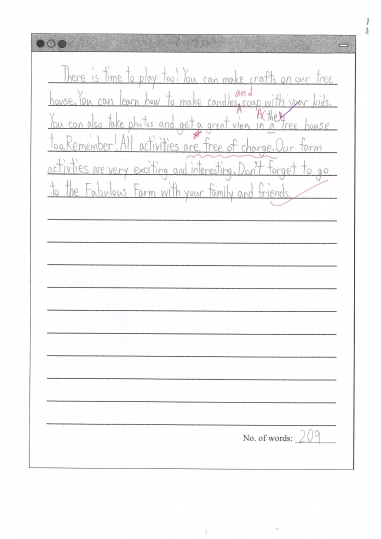 There is time to play too! You can make crafts on our tree
and
house. You can learn how to make candles, soap with your kids.
the
You can also take photos and get a great view in a tree house
too. Remember! All activities are free of charge. Our farm
activties are very exciting and interesting. Don't forget to go
to the Fabulous Farm with your family and friends.
No. of words: 209